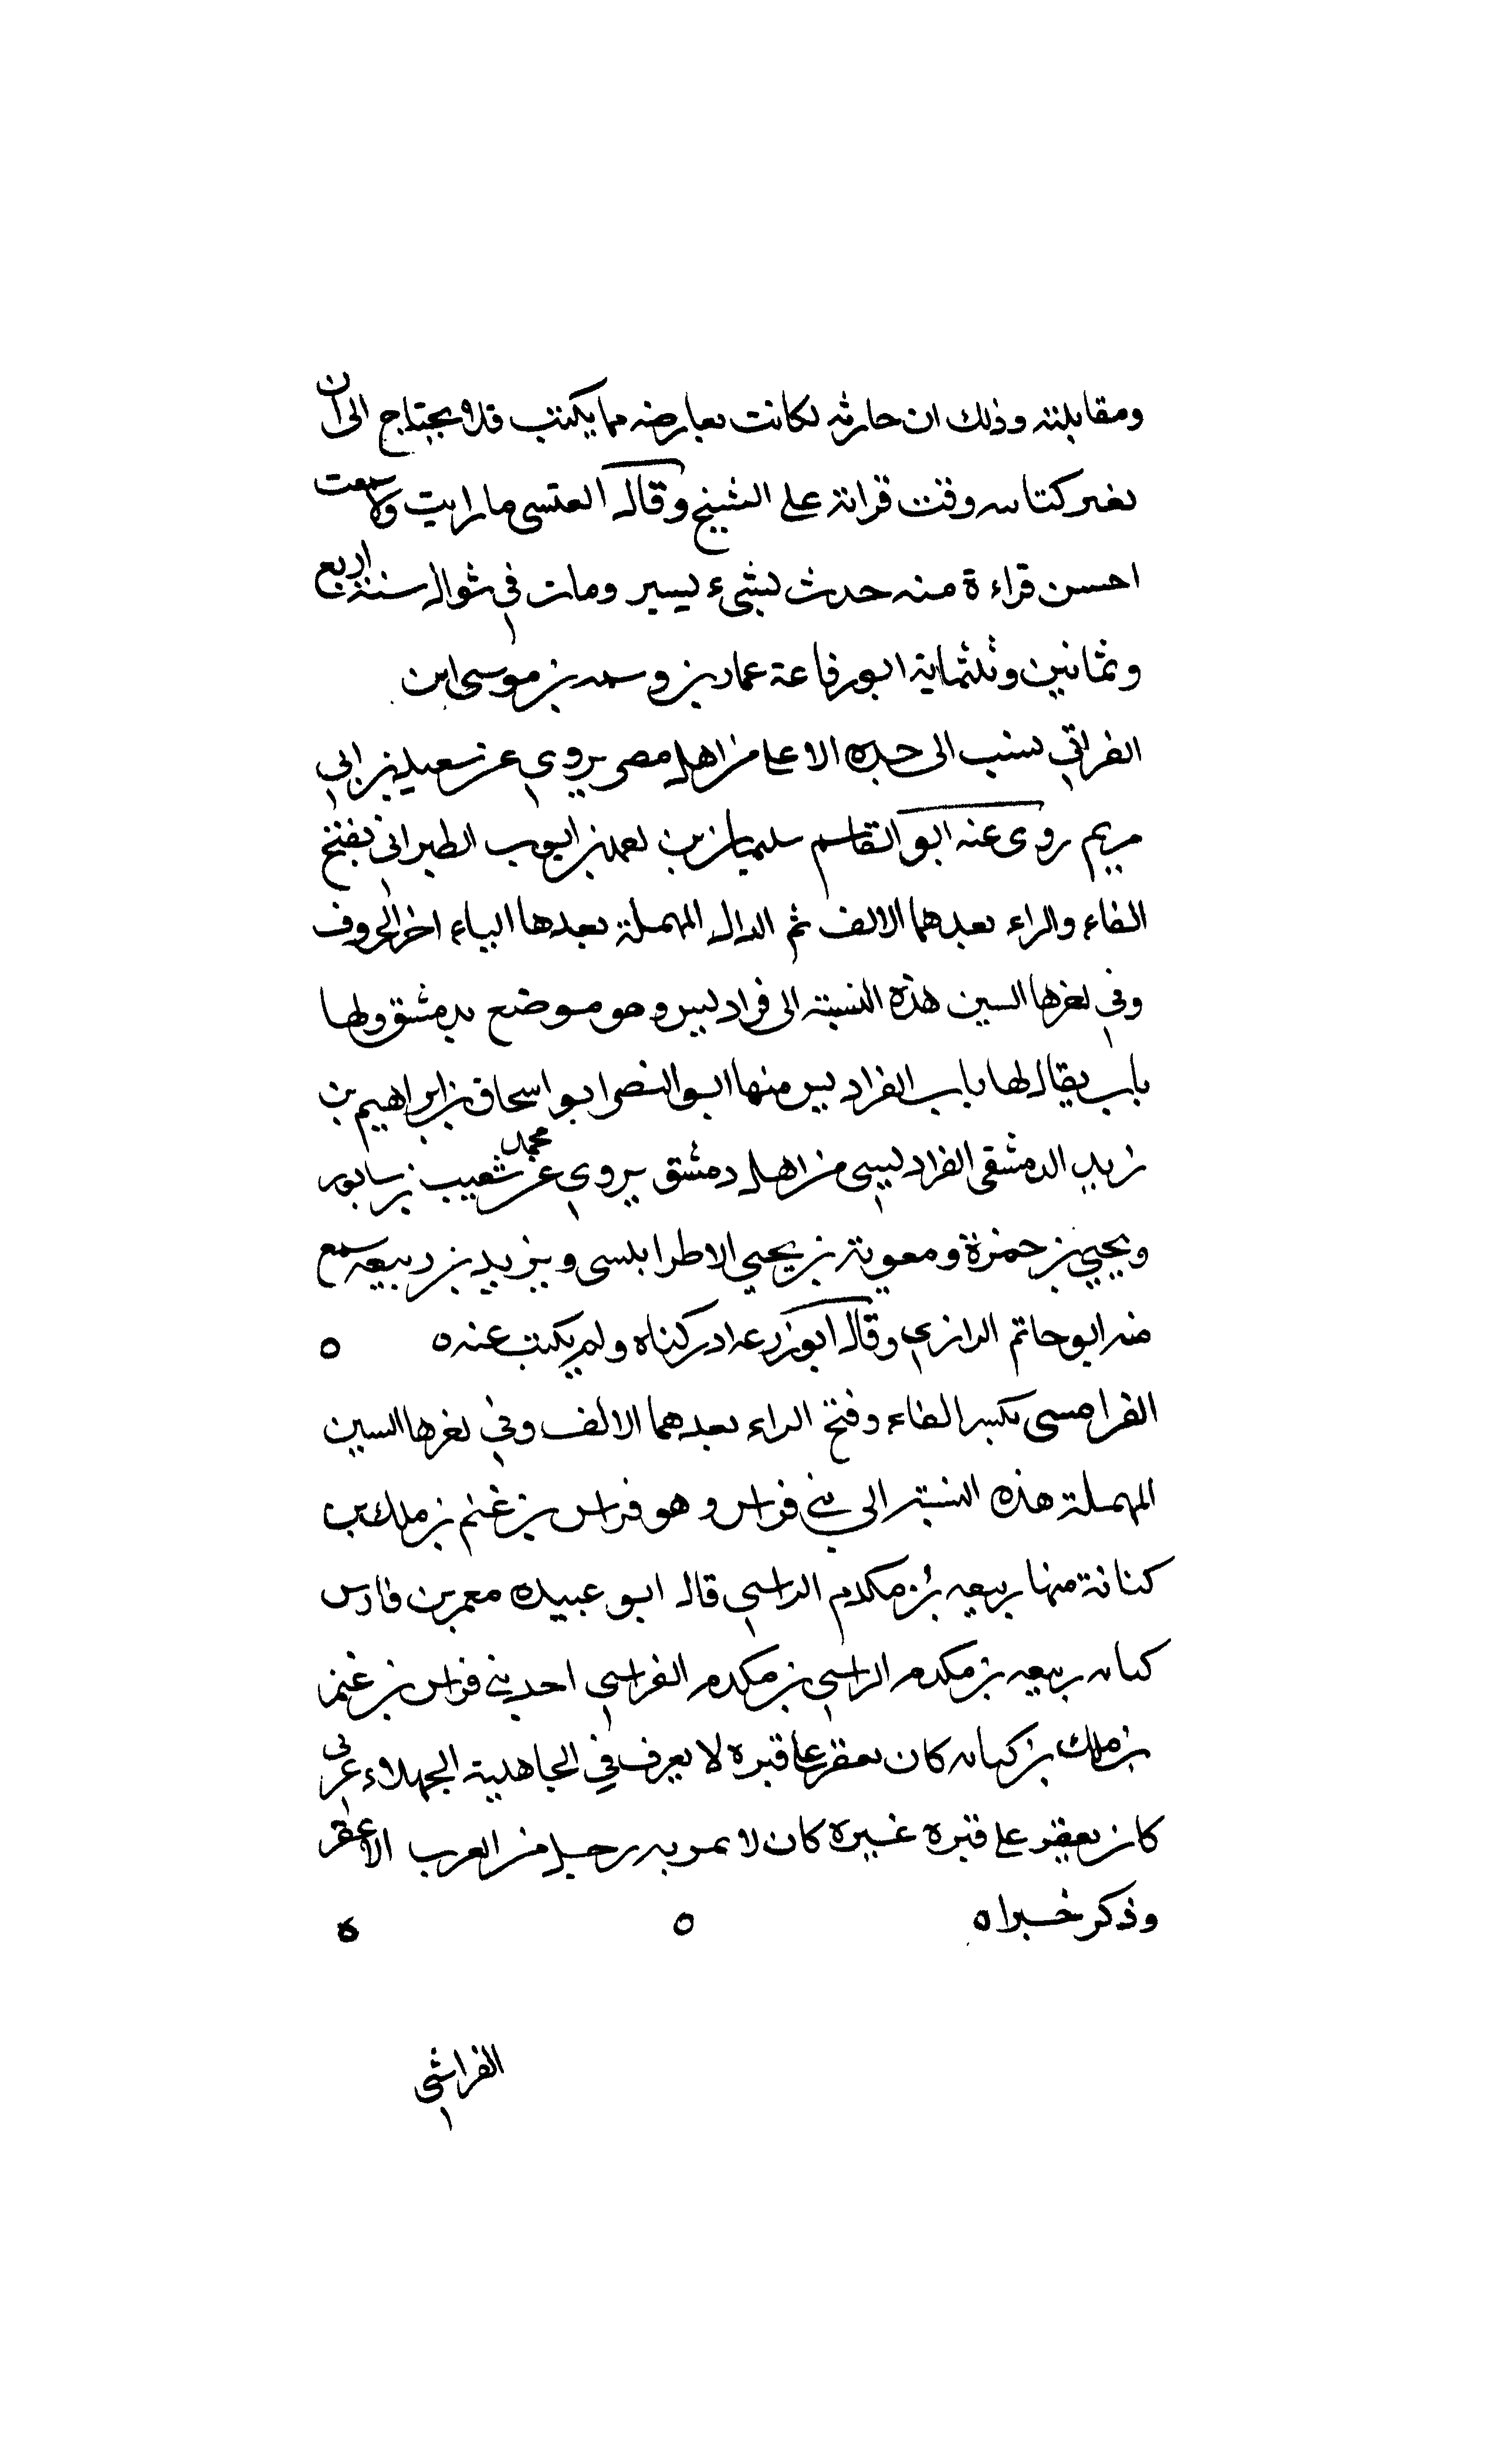 ومقابلته وذلك ان حارثه لكانت تعارضه مما يكتب فلا يحتاج الى ان
تغير كتابه وقت قرانة على الشيخ وقال العتسى ما رايت ولا سمعت
احسن قراءة منه حدث بشىء يسير ومات في شوال سنة اربع
وثمانين وثلثماية ابو رفاعة عماد بن وسمه بن موسى ابن
الفراتي نسب الى جده الاعلى من اهل مصر يروي عن سعيد بن ابي
مريم روى عنه ابو القاسم سليمان بن احمد بن ايوب الطبراني بفتح
الفاء والراء بعدهما الالف ثم الدال المهملة بعدها الياء اخر الحروف
وفي اخرها السين هذه النسبة الى فراديس وهو موضع بدمشق ولها
باب يقال لها باب الفراديس منها ابو النصر ابو اسحاق بن ابراهيم بن
زيد الدمشقى الفراديسي من اهل دمشق يروي عن محمد شعيب بن سابور
ويحيى بن حمزة ومعوية بن يحيى الاطرابلسى ويزيد بن ربيعه سمع
منه ابو حاتم الرازي وقال ابو زرعه ادركناه ولم يكتب عنه ه ه
الفرامسى بكسر الفاء وفتح الراء بعدهما الالف وفي اخرها السين
المهملة هذه النسبة الى بني فراس وهو فراس بن غنم بن ملك بن
كنانة منها ربيعه بن مكدم الراسي قال ابو عبيده معمر بن فارس
كنانه ربيعه بن مكدم الراسي بن مكدم الفراسي احد بني فراس بن غنم
بن ملك بن كنانه كان يعقر على قبره لا يعرف في الجاهلية الجهلاء عربي
كان يعقر على قبره غيره كان لا يمر به رجل من العرب الا عقر
وذكر خبرا ه ه ه
الفراشي